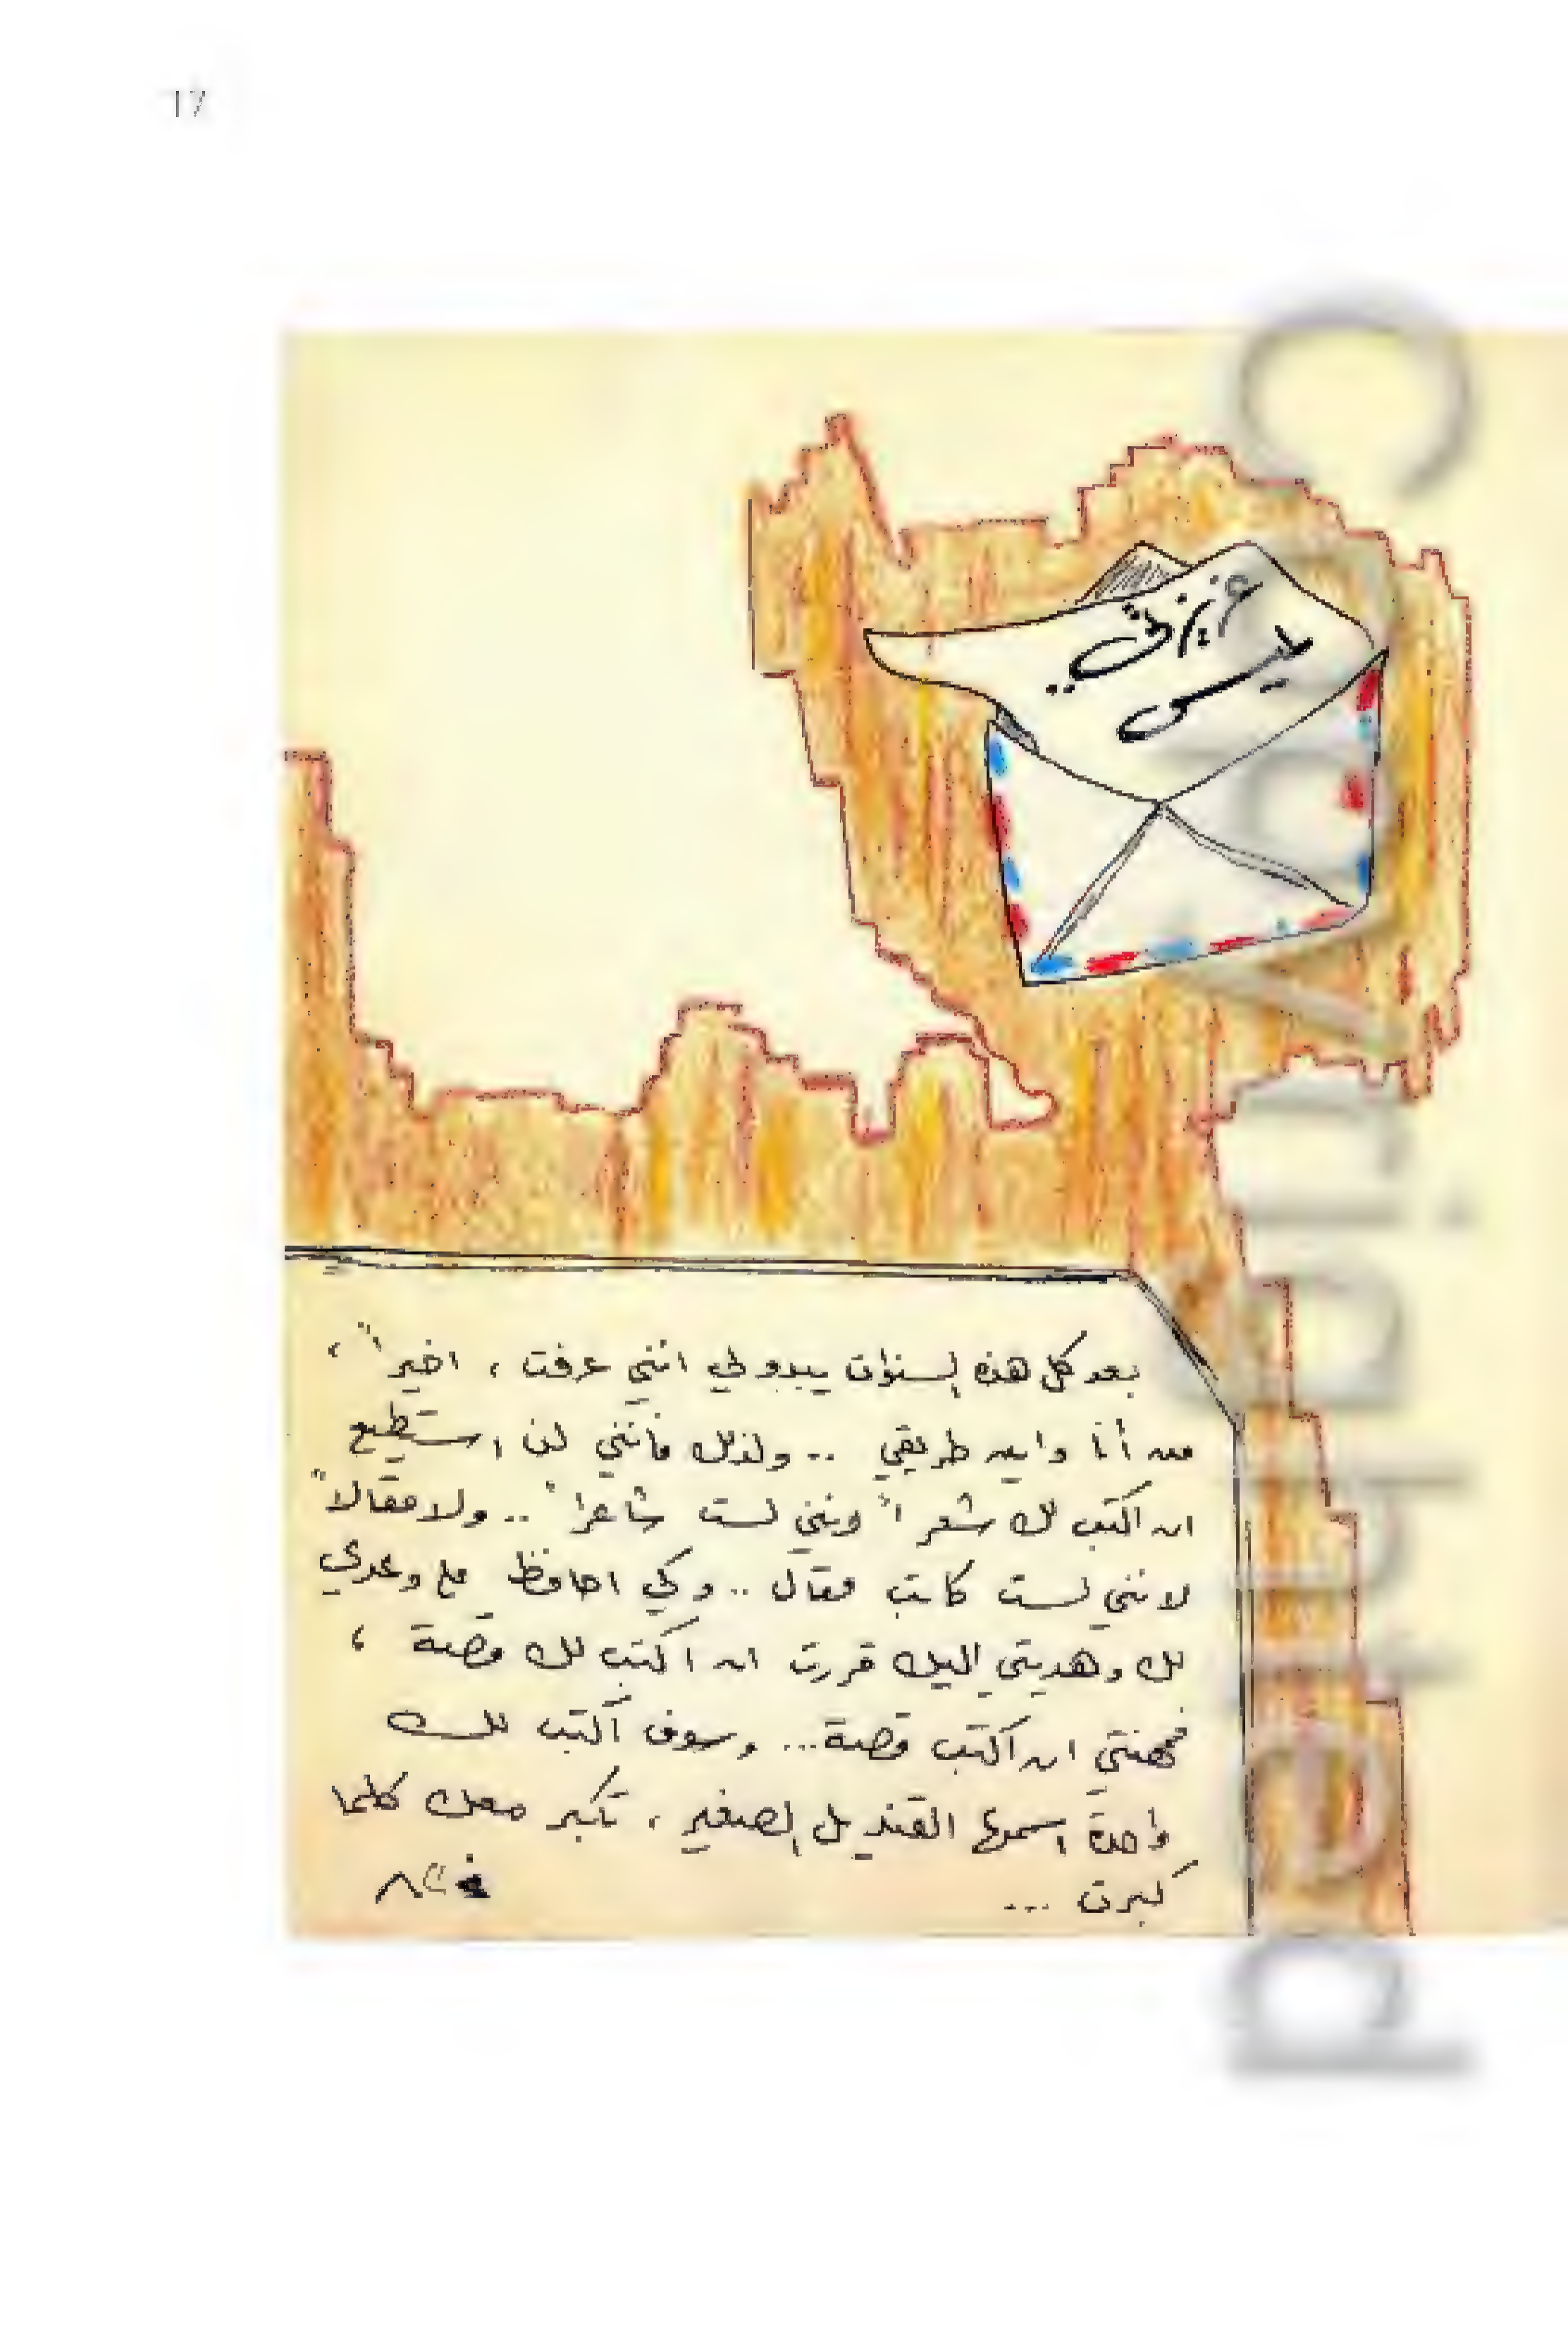 17
عزيزتي
لميس ..
بعد كل هذه السنوات يبدو لي انني عرفت ، اخيراً ،
من أنا واين طريقي .. ولذلك فانني لن استطيع
ان اكتب لك شعراً لست شاعراً .. ولا مقالاً
لانني لست كاتب مقال .. وكي احافظ على وعدي
لك وهديتي اليك قررت ان اكتب لك قصة ،
فمهنتي ان اكتب قصة ... وسوف اكتب لك
واحدة اسمها القنديل الصغير ، تكبر معك كلما
كبرت ...